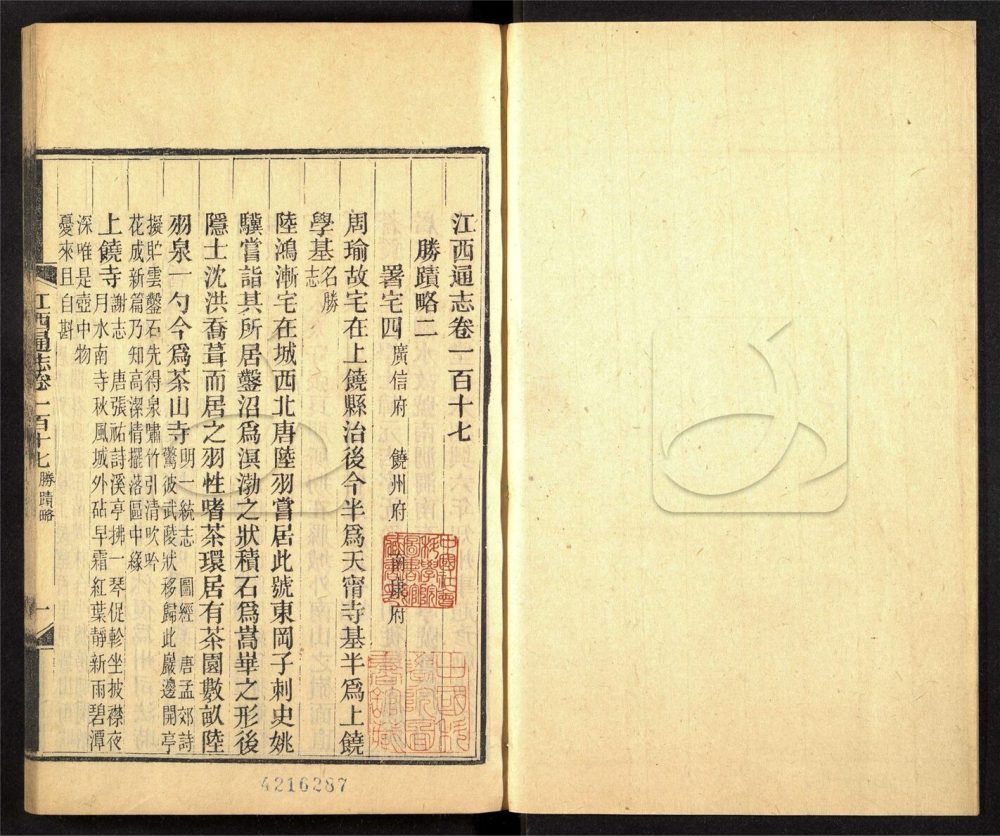 江西通志卷一百十七
勝蹟略二
署宅四 廣信府 饒州府 南康府
周瑜故宅在上饒縣治後今半爲天甯寺基半爲上饒
學基名勝志
陸鴻漸宅在城西北唐陸羽嘗居此號東岡子刺史姚
驥嘗詣其所居鑿沼爲溟渤之狀積石爲嵩華之形後
隱士沈洪喬葺而居之羽性嗜茶環居有茶園數畝陸
羽泉一勺今爲茶山寺明一統志 圖經 唐孟郊詩
驚彼武陵狀移歸此巖邊開亭
擬貯雲鑿石先得泉嘯竹引清吹吟
花成新篇乃知高潔情擺落區中緣
上饒寺謝志 唐張祜詩溪亭拂一琴促軫坐披襟夜
月水南寺秋風城外砧早霜紅葉靜新雨碧潭
深唯是壺中物
憂來且自斟
江西通志卷一百十七 勝蹟略 一
4216287